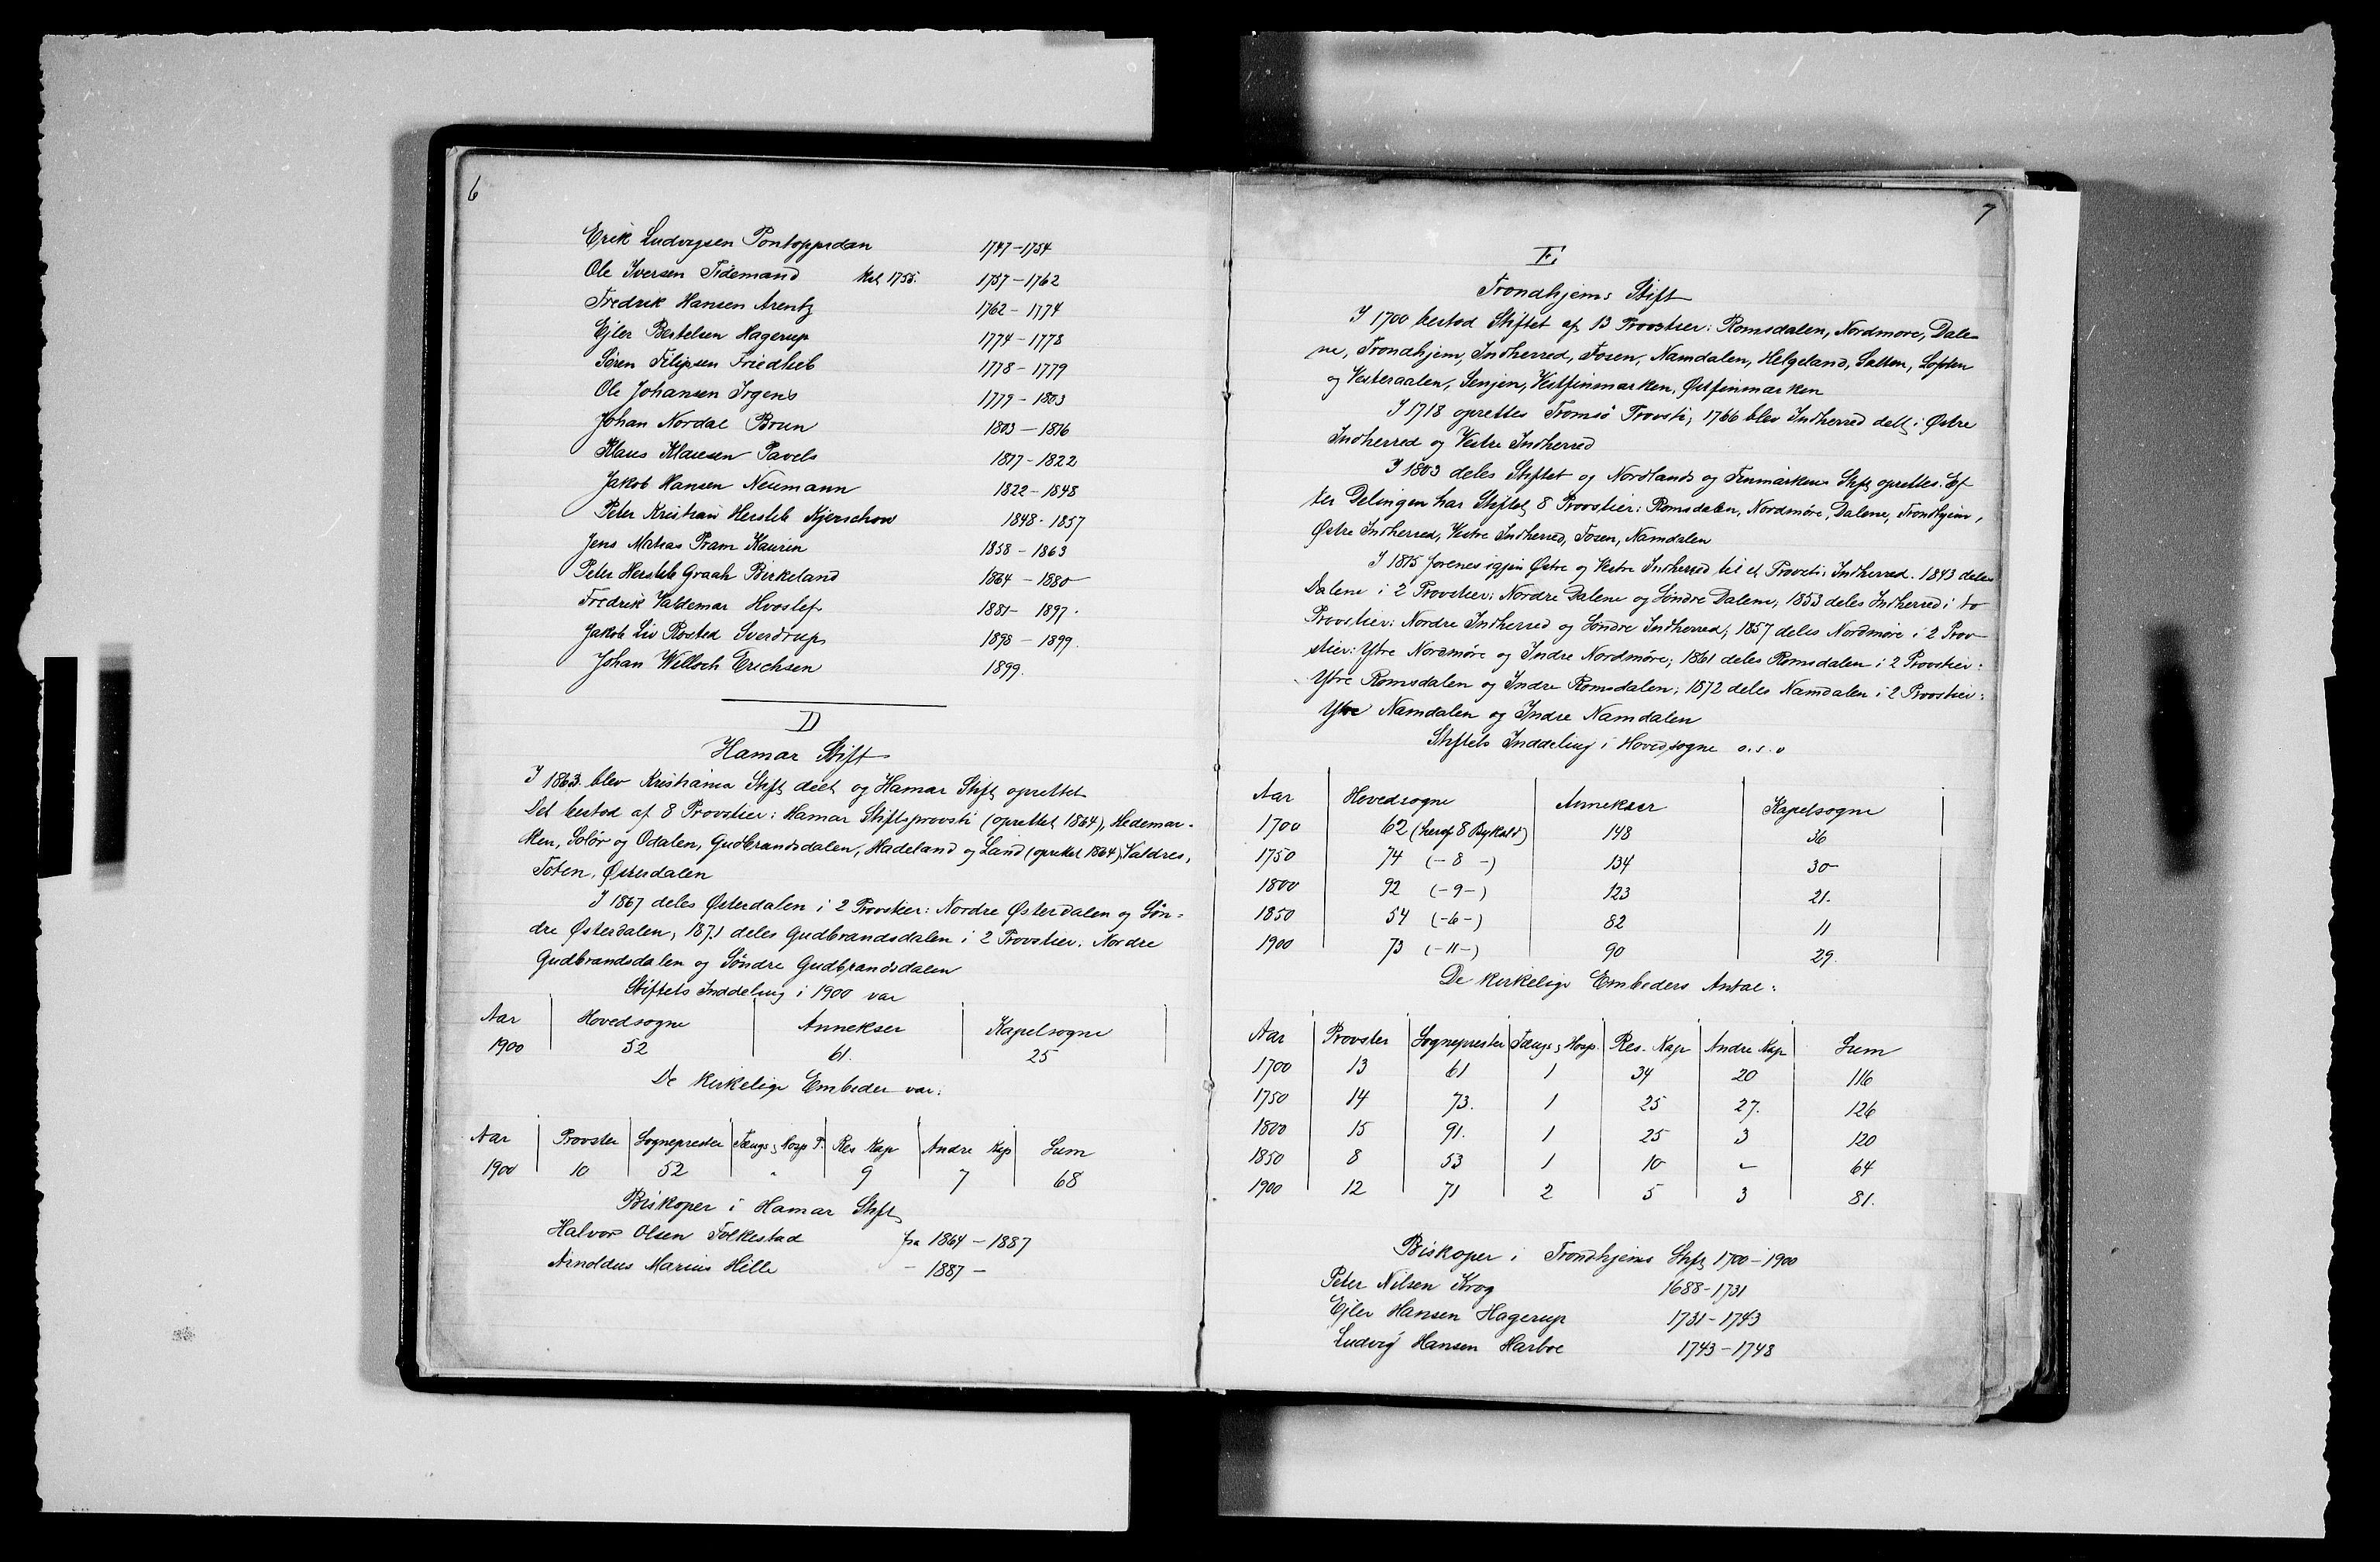 6
Erik Ludvigsen Pontoppidan 1747-1754
Ole Iversen Tidemand kst 1755. 1757-1762
Fredrik Hansen Arentz 1762-1774
Ejler Bertelsen Hagerup 1774-1778
Søren Filipsen Friedlieb 1778-1779
Ole Johansen Irgens 1779-1803
Johan Nordal Brun 1803-1816
Klaus Klausen Pavels 1817-1822
Jakob Hansen Neumann 1822-1848
Peter Kristian Hersleb Kjerschow 1848-1857
Jens Matias Pram Kaurin 1858-1863
Peter Hersleb Graah Birkeland 1864-1880
Fredrik Valdemar Hvoslef 1881-1897.
Jakob Liv Rosted Sverdrup 1898-1899.
Johan Willoch Erichsen 1899.
D
Hamar Stift
I 1863. blev Kristiania Stift delt og Hamar Stift oprettet
Det bestod af 8 Provstier: Hamar Stiftsprovsti (oprettet 1864), Hedemar-
ken, Solør og Odalen, Gudbrandsdalen, Hadeland og Land (oprettet 1864) Valdres,
Toten, Østerdalen
I 1867 deles Østerdalen i 2 Provstier: Nordre Østerdalen og Søn-
dre Østerdalen, 1871 deles Gudbrandsdalen i 2 Provstier. Nordre
Gudbrandsdalen og Søndre Gudbrandsdalen
Stiftets Inddeling i 1900 var
Aar Hovedsogne Annekser Kapelsogne
1900 52 61. 25
De kirkelige Embeder var:
Aar Provster Sogneprester Fængs. Hosp P. Res Kap Andre Kap Sum
1900 10 52 " 9 7 68
Biskoper i Hamar Stift
Halvor Olsen Folkestad fra 1864-1887
Arnoldus Marius Hille - 1887-
7
E
Trondhjems Stift
I 1700 bestod Stiftet af 13 Provstier: Romsdalen, Nordmøre, Dale-
ne, Trondhjem, Indherred, Fosen, Namdalen, Helgeland, Salten, Lofoten
og Vesteraalen, Senjen, Vestfinmarken, Østfinmarken
I 1718 oprettes Tromsø Provsti; 1766 blev Indherred delt i Østre
Indherred og Vestre Indherred
I 1803 deles Stiftet og Nordlands og Finmarkens Stift oprettes. Ef
ter Delingen har Stiftet 8 Provstier: Romsdalen, Nordmøre, Dalene, Trondhjem,
Østre Indherred, Vestre Indherred, Fosen, Namdalen
I 1815 forenes igjen Østre og Vestre Indherred til et Provsti: Indherred. 1843 deles
Dalene i 2 Provstier: Nordre Dalene og Søndre Dalene; 1853 deles Indherred i to
Provstier: Nordre Indherred og Søndre Indherred; 1857 deles Nordmøre i 2 Prov
stier: Ytre Nordmøre og Indre Nordmøre; 1861 deles Romsdalen i 2 Provstier:
Ytre Romsdalen og Indre Romsdalen; 1872 deles Namdalen i 2 Provstier:
Ytre Namdalen og Indre Namdalen
Stiftets Inddeling i Hovedsogne o.s.v
Aar Hovedsogne Annekser Kapelsogne
1700 62 (heraf 8 Bykald) 148 36
1750 74 (- 8 -) 134 30
1800 92 (- 9 -) 123 21.
1850 54 (- 6 -) 82 11
1900 73 (- 11 -) 90 29.
De kirkelige Embeders Antal:
Aar Provster Sogneprester Fængs. Hosp. Res. Kap Andre Kap Sum
1700 13 61 1 34 20 116
1750 14 73. 1 25 27. 126
1800 15 91. 1 25 3 120
1850 8 53 1 10 - 64
1900 12 71 2 5 3 81.
Biskoper i Trondhjems Stift 1700-1900
Peter Nilsen Krog 1688-1731
Ejler Hansen Hagerup 1731-1743
Ludvig Hansen Harboe 1743-1748